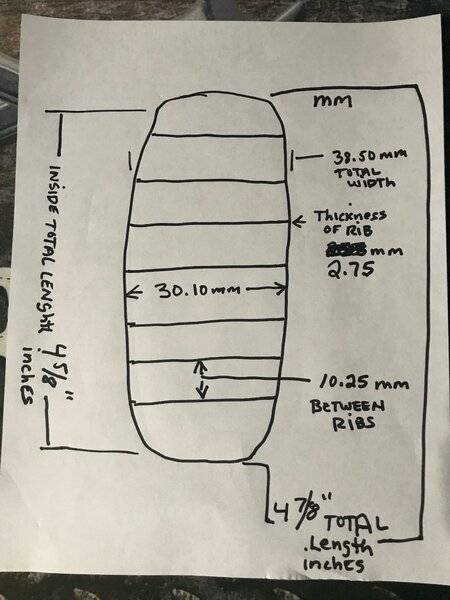 mm
38.50 mm
TOTAL
WIDTH
Thickness
OF RIB
mm
2.75
30.10 mm
INSIDE TOTAL LENGHT 4 5/8"
inches
10.25 mm
BETWEEN
RIBS
4 7/8" TOTAL
Length
inches